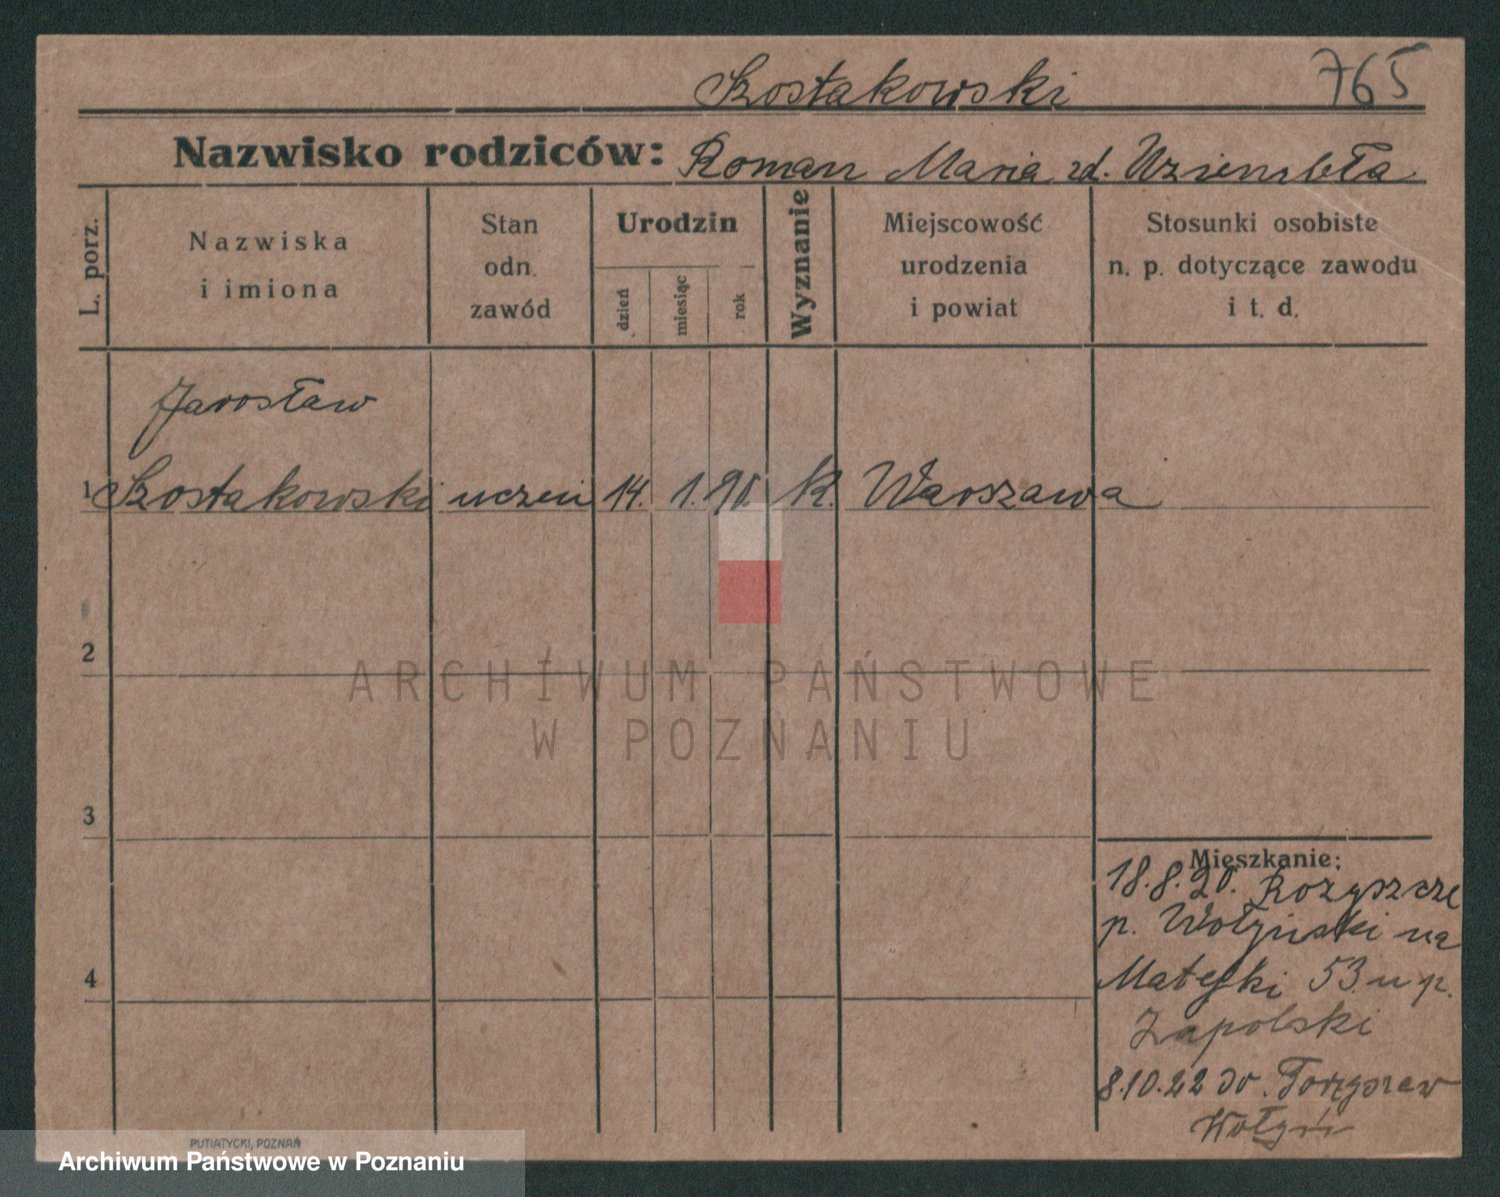 Szostakowski 765
Nazwisko rodziców: Roman Maria zd. Uziembła
L. porz.
Nazwiska
i imiona
Stan
odn.
zawód
Urodzin
dzień
miesiąc
rok
Wyznanie
Miejscowość
urodzenia
i powiat
Stosunki osobiste
n. p. dotyczące zawodu
i t. d.
Jarosław
1 Szostakowski uczeń 14. 1. 90. K. Warszawa
2
ARCHIWUM PAŃSTWOWE
W POZNANIU
3
Mieszkanie:
18.8.20. Rożyszcze
p. Wołyński na
Matejki 53. u p.
4
Zapolski
8.10.22 do
Wołyń
PUTIATYCKI, POZNAŃ
Archiwum Państwowe w Poznaniu